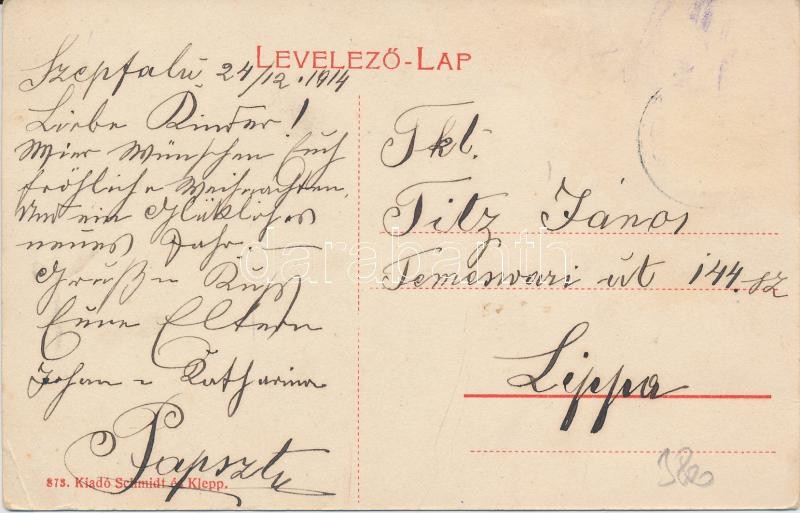 LEVELEZŐ-LAP
Szépfalu 24/12.1914
Liebe Kinder!
Wier Wünschen Euch
fröhliche Weihnachten,
und ein Glükliches
neues Jahr.
Gruß u Kuss
Eure Eltern
Johan u Katharina
Papszt
Tkt.
Titz János
Temesvari út 144. sz
Lippa
darabanth
3820
873. Kiadó Schmidt és Klepp.